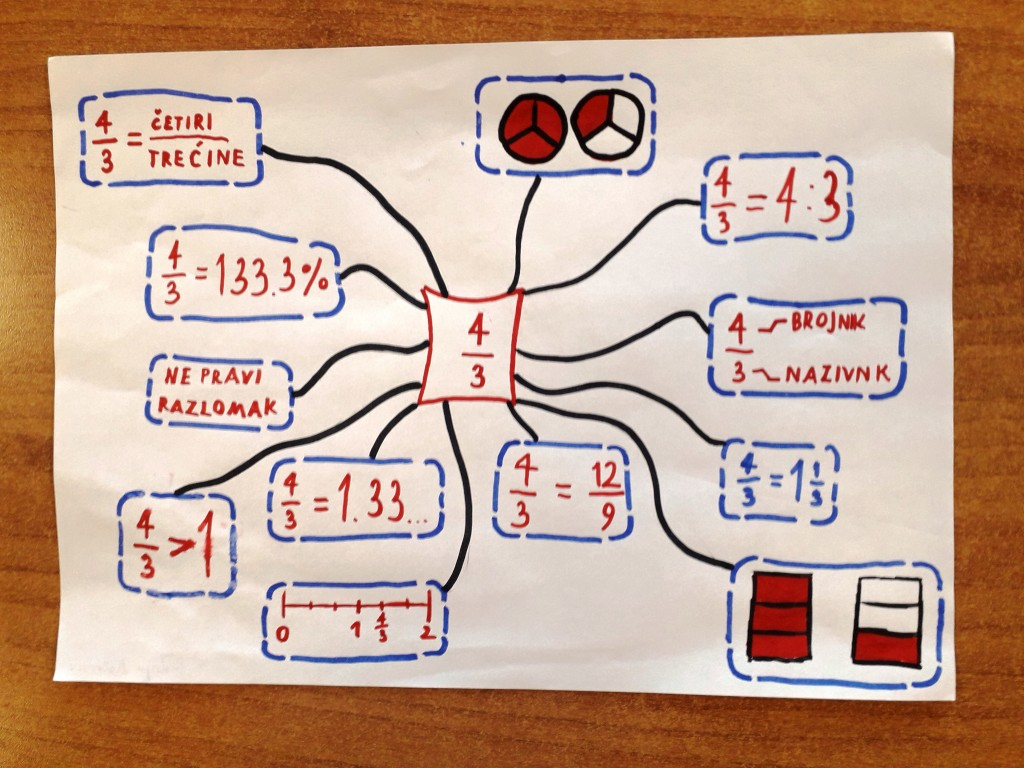 4/3 = ČETIRI/TREĆINE
4/3 = 4:3
4/3 = 133.3%
4/3
4 BROJNIK
3 NAZIVNK
NE PRAVI
RAZLOMAK
4/3 = 1 1/3
4/3 = 1.33...
4/3 = 12/9
4/3 > 1
0 1 4/3 2